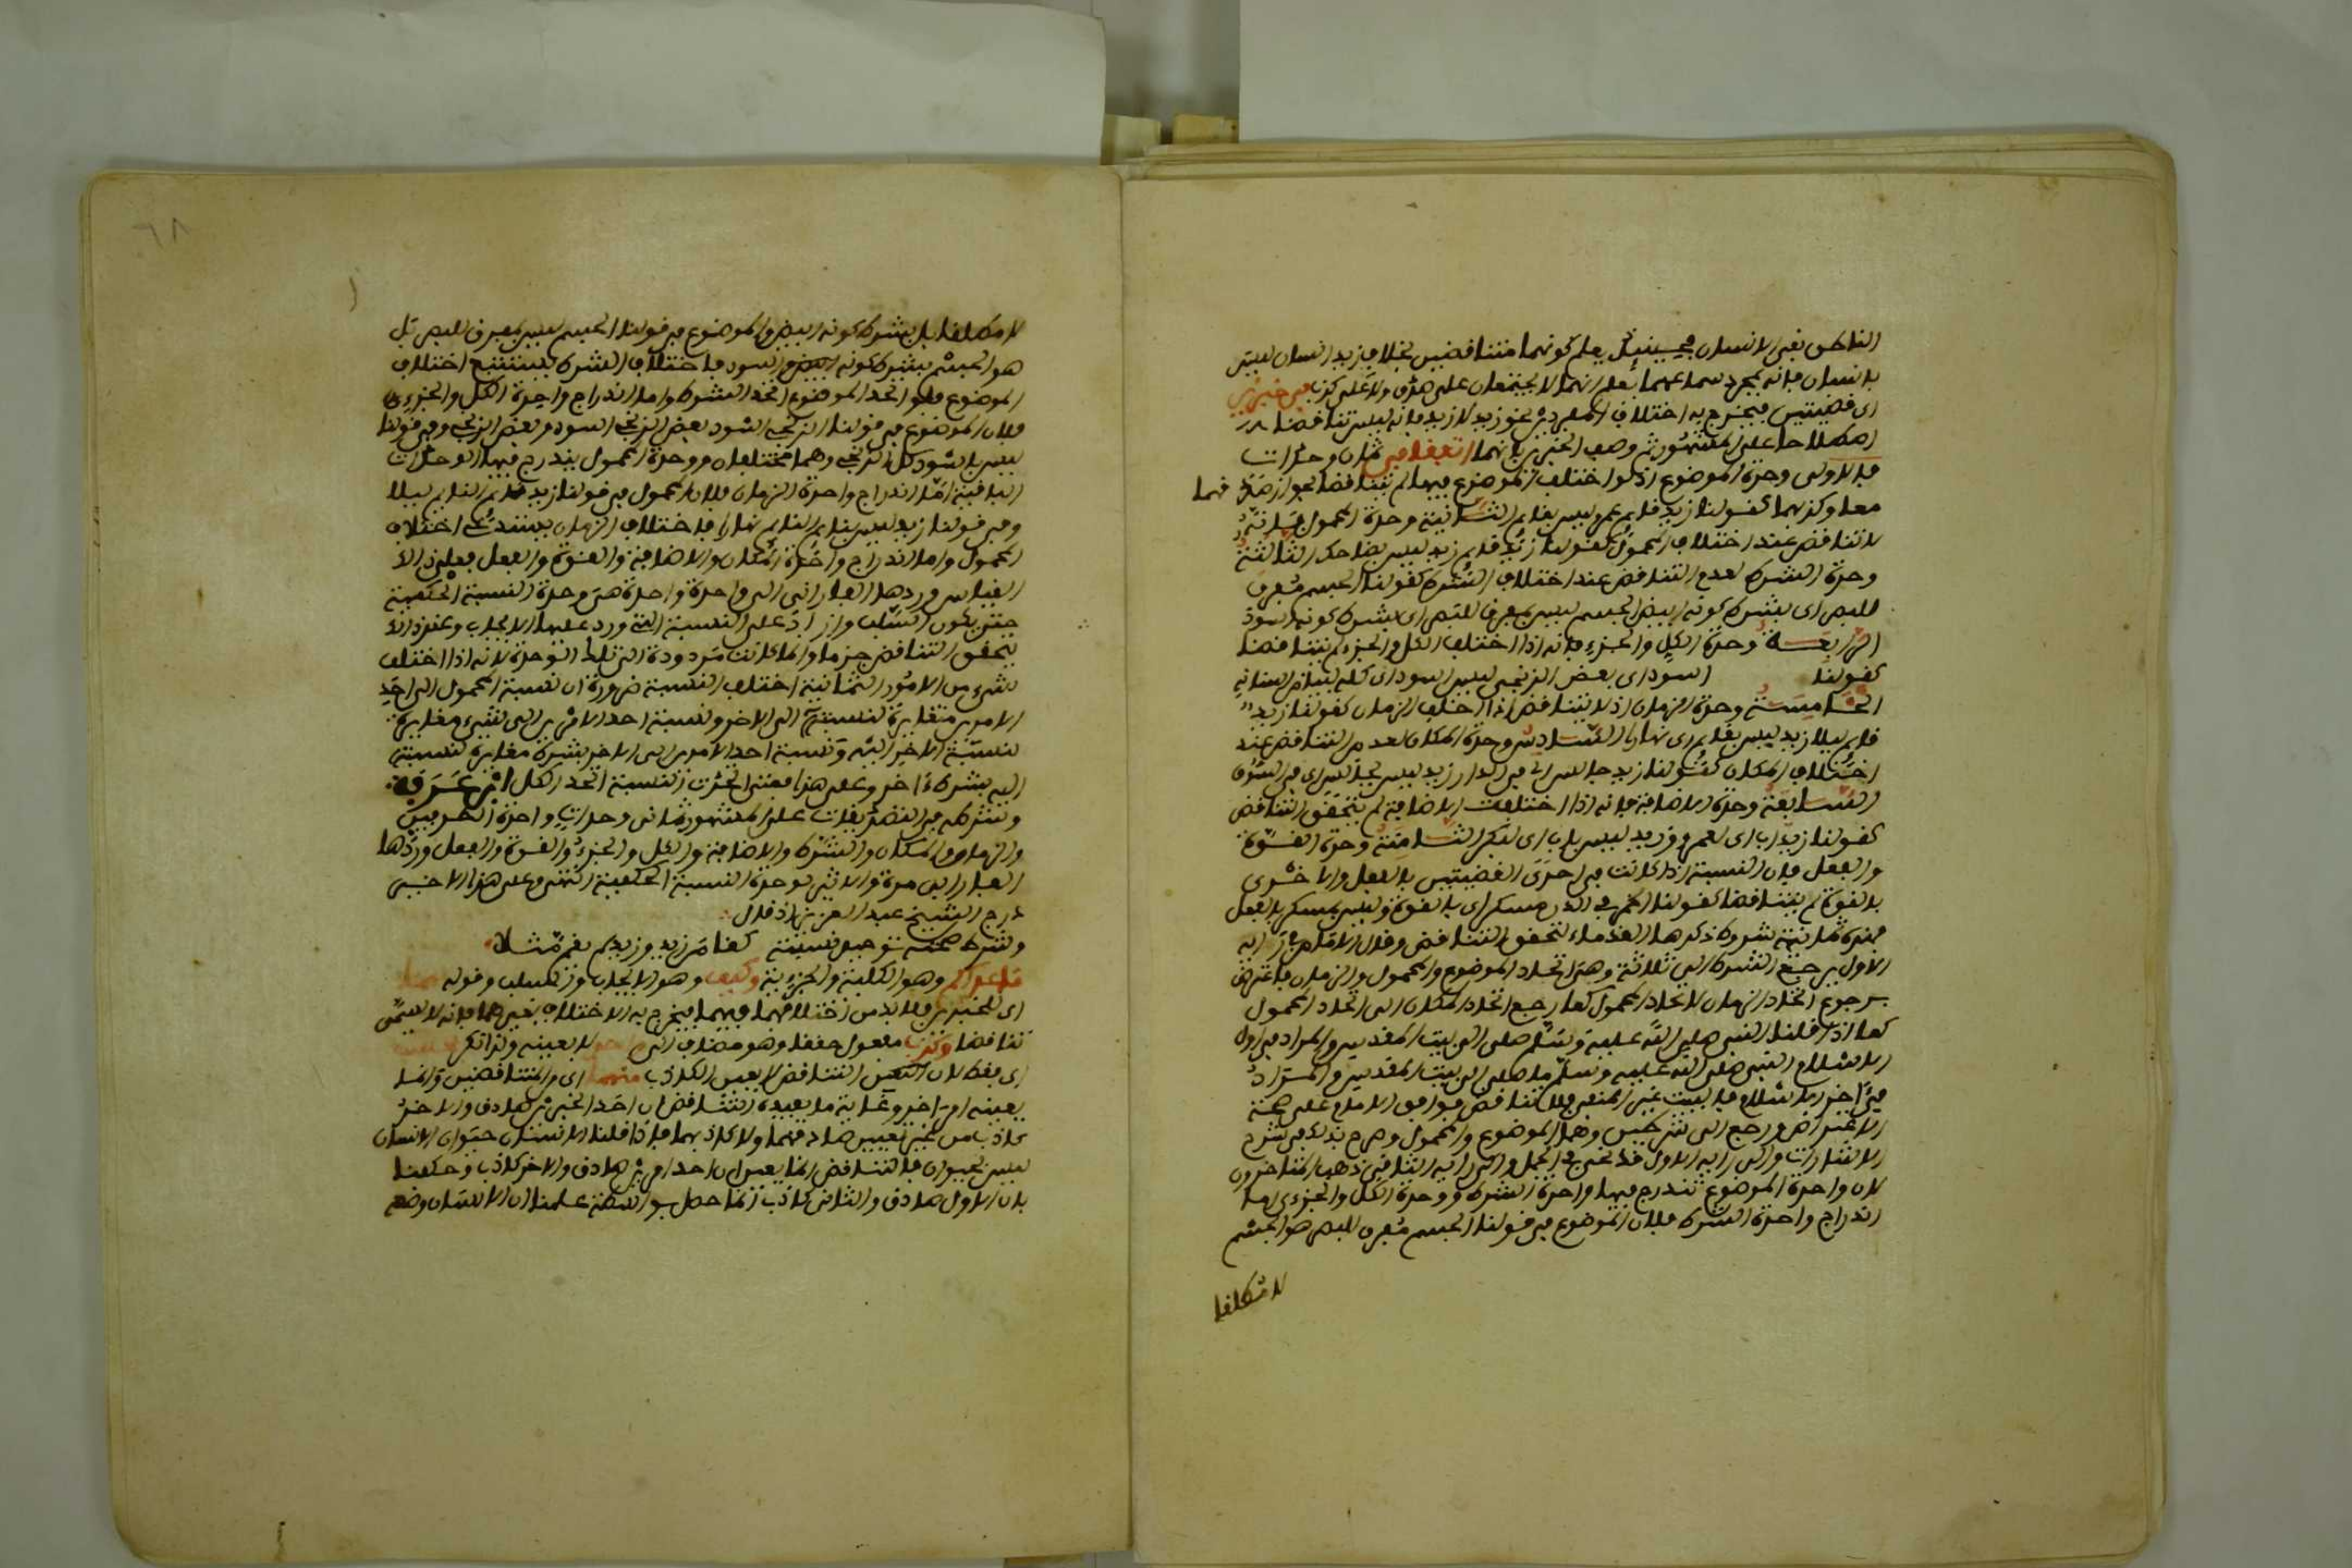 الناطق نفي الانسان فحينئذ يعلم كونهما متناقضين بخلاف زيد انسان ليس
بانسان فانه بمجرد سماعهما يعلم انهما لا يجتمعان على صدق ولا على كذب في خبرين
اي قضيتين فيخرج به اختلاف المفردين نحو زيد لا زيد فانه ليس تناقضا
اصطلاحا على المشهور ثم وصف الخبرين بانهما اتفقا في ثمان وحدات
فالاولى وحدة الموضوع اذ لو اختلف الموضوع فيهما لم يتناقضا لجواز صدقهما
معا وكذبهما كقولنا زيد قايم عمرو ليس بقايم الثانية وحدة المحمول فانه
لا تناقض عند اختلاف المحمول كقولنا زيد قايم زيد ليس بضاحك الثالثة
وحدة الشرط لعدم التناقض عند اختلاف الشرط كقولنا الجسم مفرق
للبصر اي بشرط كونه ابيض الجسم ليس بمفرق للبصر اي بشرط كونه اسود
الرابعة وحدة الكل والجزء فانه اذا اختلف الكل والجزء لم يتناقضا
كقولنا اسود اي بعض الزنجي ليس اسود اي كله
الخامسة وحدة الزمان اذ لا تناقض اذا اختلف الزمان كقولنا زيد
قايم ليلا زيد ليس بقايم اي نهارا السادس وحدة المكان لعدم التناقض عند
اختلاف المكان كقولنا زيد جالس اي في الدار زيد ليس بجالس اي في السوق
السابعة وحدة الاضافة فانه اذا اختلفت الاضافة لم يتحقق التناقض
كقولنا زيد اب اي لعمرو زيد ليس باب اي لبكر الثامنة وحدة القوة
والفعل فان النسبة اذا كانت في احدى القضيتين بالفعل والاخرى
بالقوة لم يتناقضا كقولنا الخمر في الدن مسكر اي بالقوة وليس بمسكر بالفعل
فهذه ثمانية شروط ذكرها القدماء لتحقق التناقض وقال الامام
الاول يرجع الشرط الى ثلاثة وهي اتحاد الموضوع والمحمول والزمان فاعترض
برجوع اتحاد الزمان لاتحاد المحمول كما رجع اتحاد المكان الى اتحاد المحمول
كما اذا قلنا النبي صلى الله عليه وسلم صلى الى بيت المقدس والمراد في اول
الاسلام النبي صلى الله عليه وسلم ما صلى الى بيت المقدس والمراد
في اخر الاسلام فالمثبت غير المنفي فلا تناقض فوافق الامام على صحة
الاعتراض ورجع الى شرطين وهما الموضوع والمحمول وصرح بذلك في شرح
الاشارات والى رايه الاول والى رايه الثاني ذهب المتاخرون
لان وحدة الموضوع تندرج فيها وحدة الشرط ووحدة الكل والجزء اما
اندراج وحدة الشرط فلان الموضوع في قولنا الجسم مفرق للبصر هو الجسم
لا مطلقا
لا مطلقا بل بشرط كونه ابيض والموضوع في قولنا الجسم ليس بمفرق للبصر بل
هو الجسم بشرط كونه اسود فاختلاف الشرط يستتبع اختلاف
الموضوع فلو اتحد الموضوع اتحد الشرط واما اندراج وحدة الكل والجزء
فلان الموضوع في قولنا الزنجي اسود بعض الزنجي وفي قولنا
ليس باسود كل الزنجي وهما مختلفان ووحدة المحمول يندرج فيها الوحدات
الباقية اما اندراج وحدة الزمان فلان المحمول في قولنا زيد قايم القايم ليلا
وفي قولنا زيد ليس بقايم القايم نهارا فاختلاف الزمان يستدعي اختلاف
المحمول واما اندراج وحدة المكان والاضافة والقوة والفعل فعلى ذلك
القياس وردها الفارابي الى واحدة هي وحدة النسبة الحكمية
حتى يكون السلب واردا على النسبة التي ورد عليها الايجاب وعند ذلك
يتحقق التناقض جزما وانما كانت مردودة الى تلك الوحدة لانه اذا اختلف
شيء من الامور الثمانية اختلف النسبة ضرورة ان نسبة المحمول الى احد
الامرين مغايرة لنسبته الى الاخر ونسبة احد الامرين الى شيء مغايرة
لنسبة الاخر اليه ونسبة احد الامرين الى الاخر بشرط مغايرة لنسبته
اليه بشرط اخر وعلى هذا فمتى اتحدت النسبة اتحد الكل ابن عرفة
وشرطه في التصديقات على المشهور ثماني وحدات واحدة الطرفين
والزمان والمكان والشرط والاضافة والكل والجزء والقوة والفعل وردها
الفارابي مرة لوحدة النسبة الحكمية انتهى وعلى هذا الاخير
درج الشيخ عبد العزيز اذ قال
وشرط كقام زيد وزيد لم يقم مثلا
ما عدا كم وهو الكلية والجزئية وكيف وهو الايجاب والسلب وقوله
اي الخبرين فلا بد من اختلافهما فيهما فيخرج به الاختلاف بغيرهما فانه لا يسمى
تناقضا وكذب مفعول حققا وهو مضاف الى لا بعينه
اي فقط لان التناقض لا يعين الكاذب منهما اي المتناقضين وانما
يعينه امر اخر وغاية ما يفيده التناقض ان احد الخبرين صادق والاخر
كاذب من غير تعيين صادقهما ولا كاذبهما فاذا قلنا الانسان حيوان الانسان
ليس بحيوان فالتناقض انما يعين ان احد امرين صادق والاخر كاذب وحكمنا
بان الاول صادق والثاني كاذب انما حصل بواسطة علمنا ان الانسان وضع